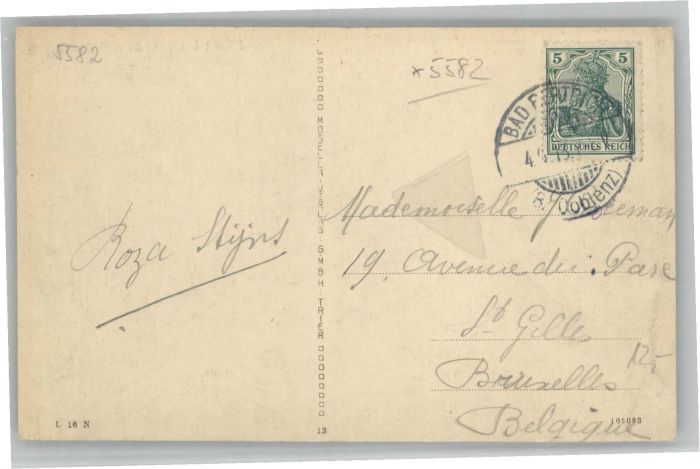 5582
*5582
5 5
DEUTSCHES REICH
BAD BERTRICH
4.
(Coblenz)
MOSELLA-VERLAG GMBH·TRIER
Roza Stijns
Mademoiselle
19, Avenue du Parc
St Gilles
Bruxelles
Belgique
12,-
L 16 N
13
165083